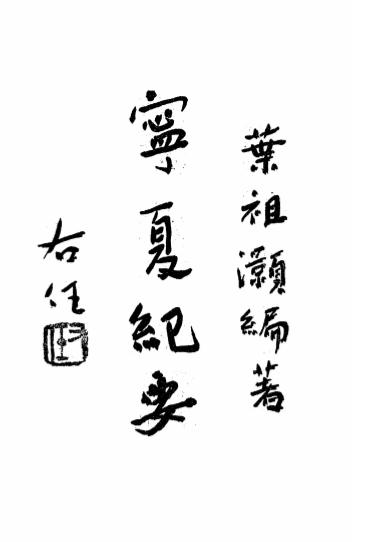 葉祖灝編著
寧夏紀要
右任